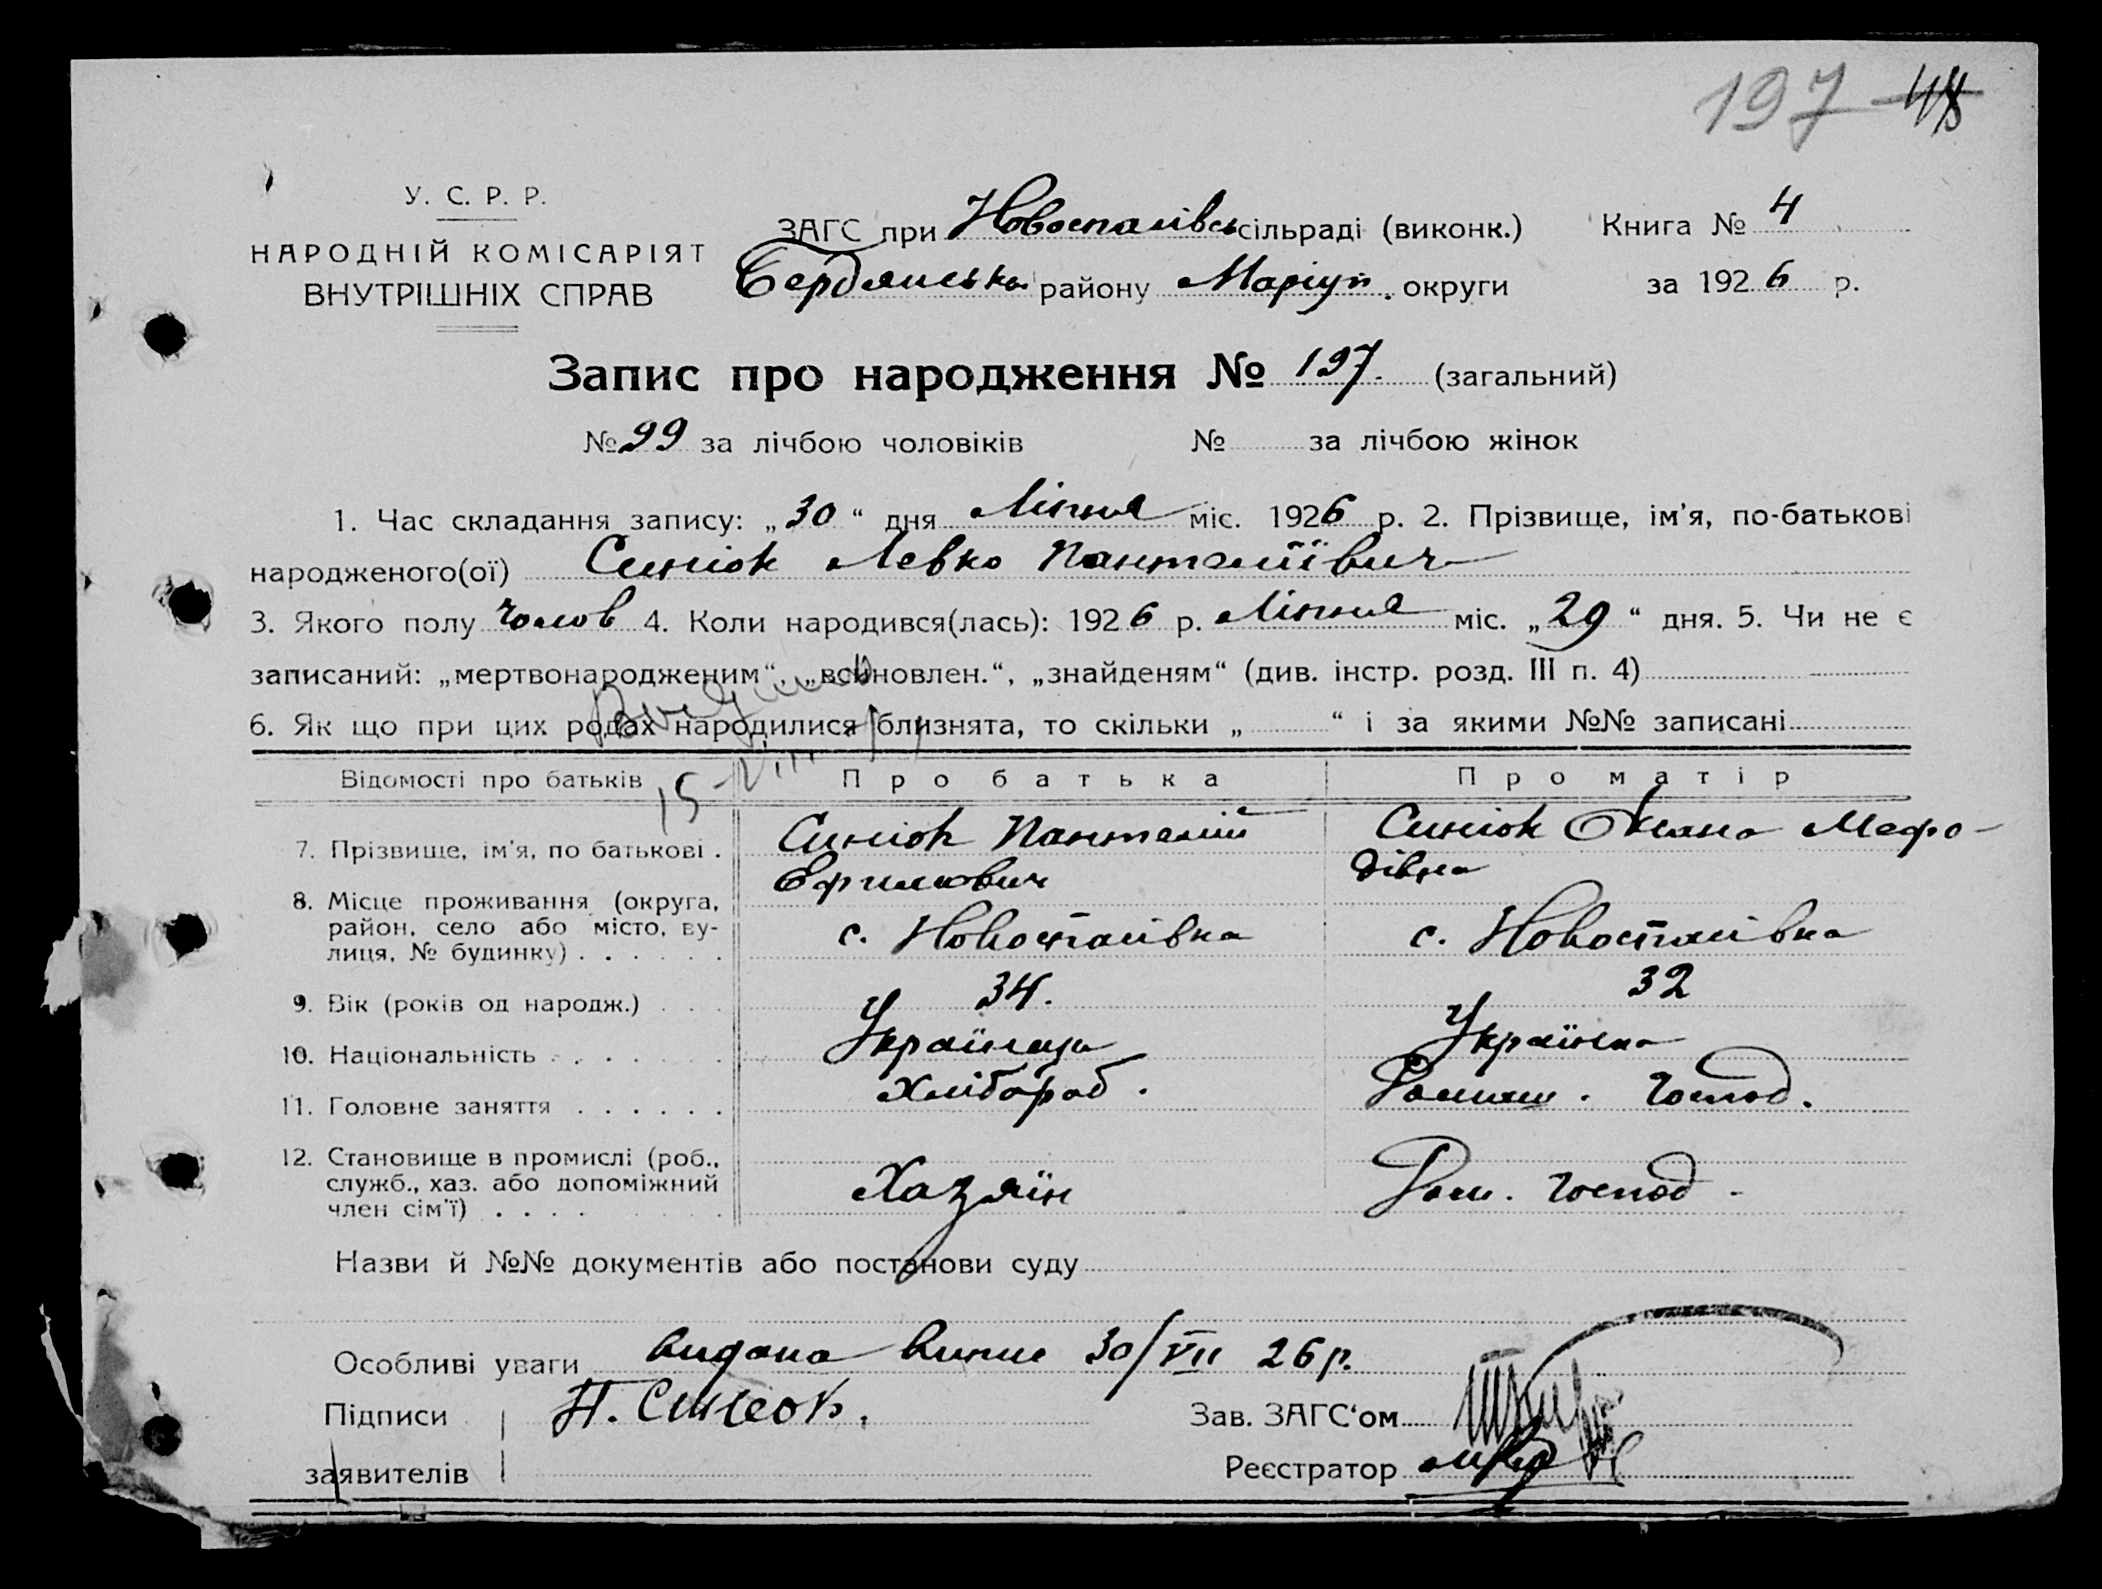 197 48
У. С. Р. Р.
НАРОДНІЙ КОМІСАРІЯТ
ВНУТРІШНІХ СПРАВ
ЗАГС при Новоспаківськ сільраді (виконк.) Книга № 4
Бердянська району Маріуп. округи за 1926 р.
Запис про народження № 197. (загальний)
№ 99 за лічбою чоловіків № за лічбою жінок
1. Час складання запису: „30“ дня Липня міс. 1926 р. 2. Прізвище, ім'я, по-батькові
народженого(ої) Синюк Левко Панталіївич
3. Якого полу Чолов 4. Коли народився(лась): 1926 р. Липня міс. „29“ дня. 5. Чи не є
записаний: „мертвонародженим“, „всиновлен.“, „знайденям“ (див. інстр. розд. III п. 4)
6. Як що при цих родах народилися близнята, то скільки „ “ і за якими №№ записані
15-VIII
Відомості про батьків Про батька Про матір
7. Прізвище, ім'я, по батькові . Синюк Панталій Синюк Оксана Мефо-
Ефимович дівна
8. Місце проживання (округа,
район, село або місто, ву-
лиця, № будинку) . . . . . . с. Новоспаківка с. Новоспаківка
9. Вік (років од народж.) . . . 34. 32
10. Національність . . . . . . . Українець Українка
11. Головне заняття . . . . . . Хлібороб. Домаш. Господ.
12. Становище в промислі (роб.,
служб., хаз. або допоміжний
член сім'ї) . . . . Хазяїн Дом. Господ.
Назви й №№ документів або постанови суду
Особливі уваги видана випис 30/VII 26 р.
Підписи П. Синюк. Зав. ЗАГС'ом
заявителів Реєстратор